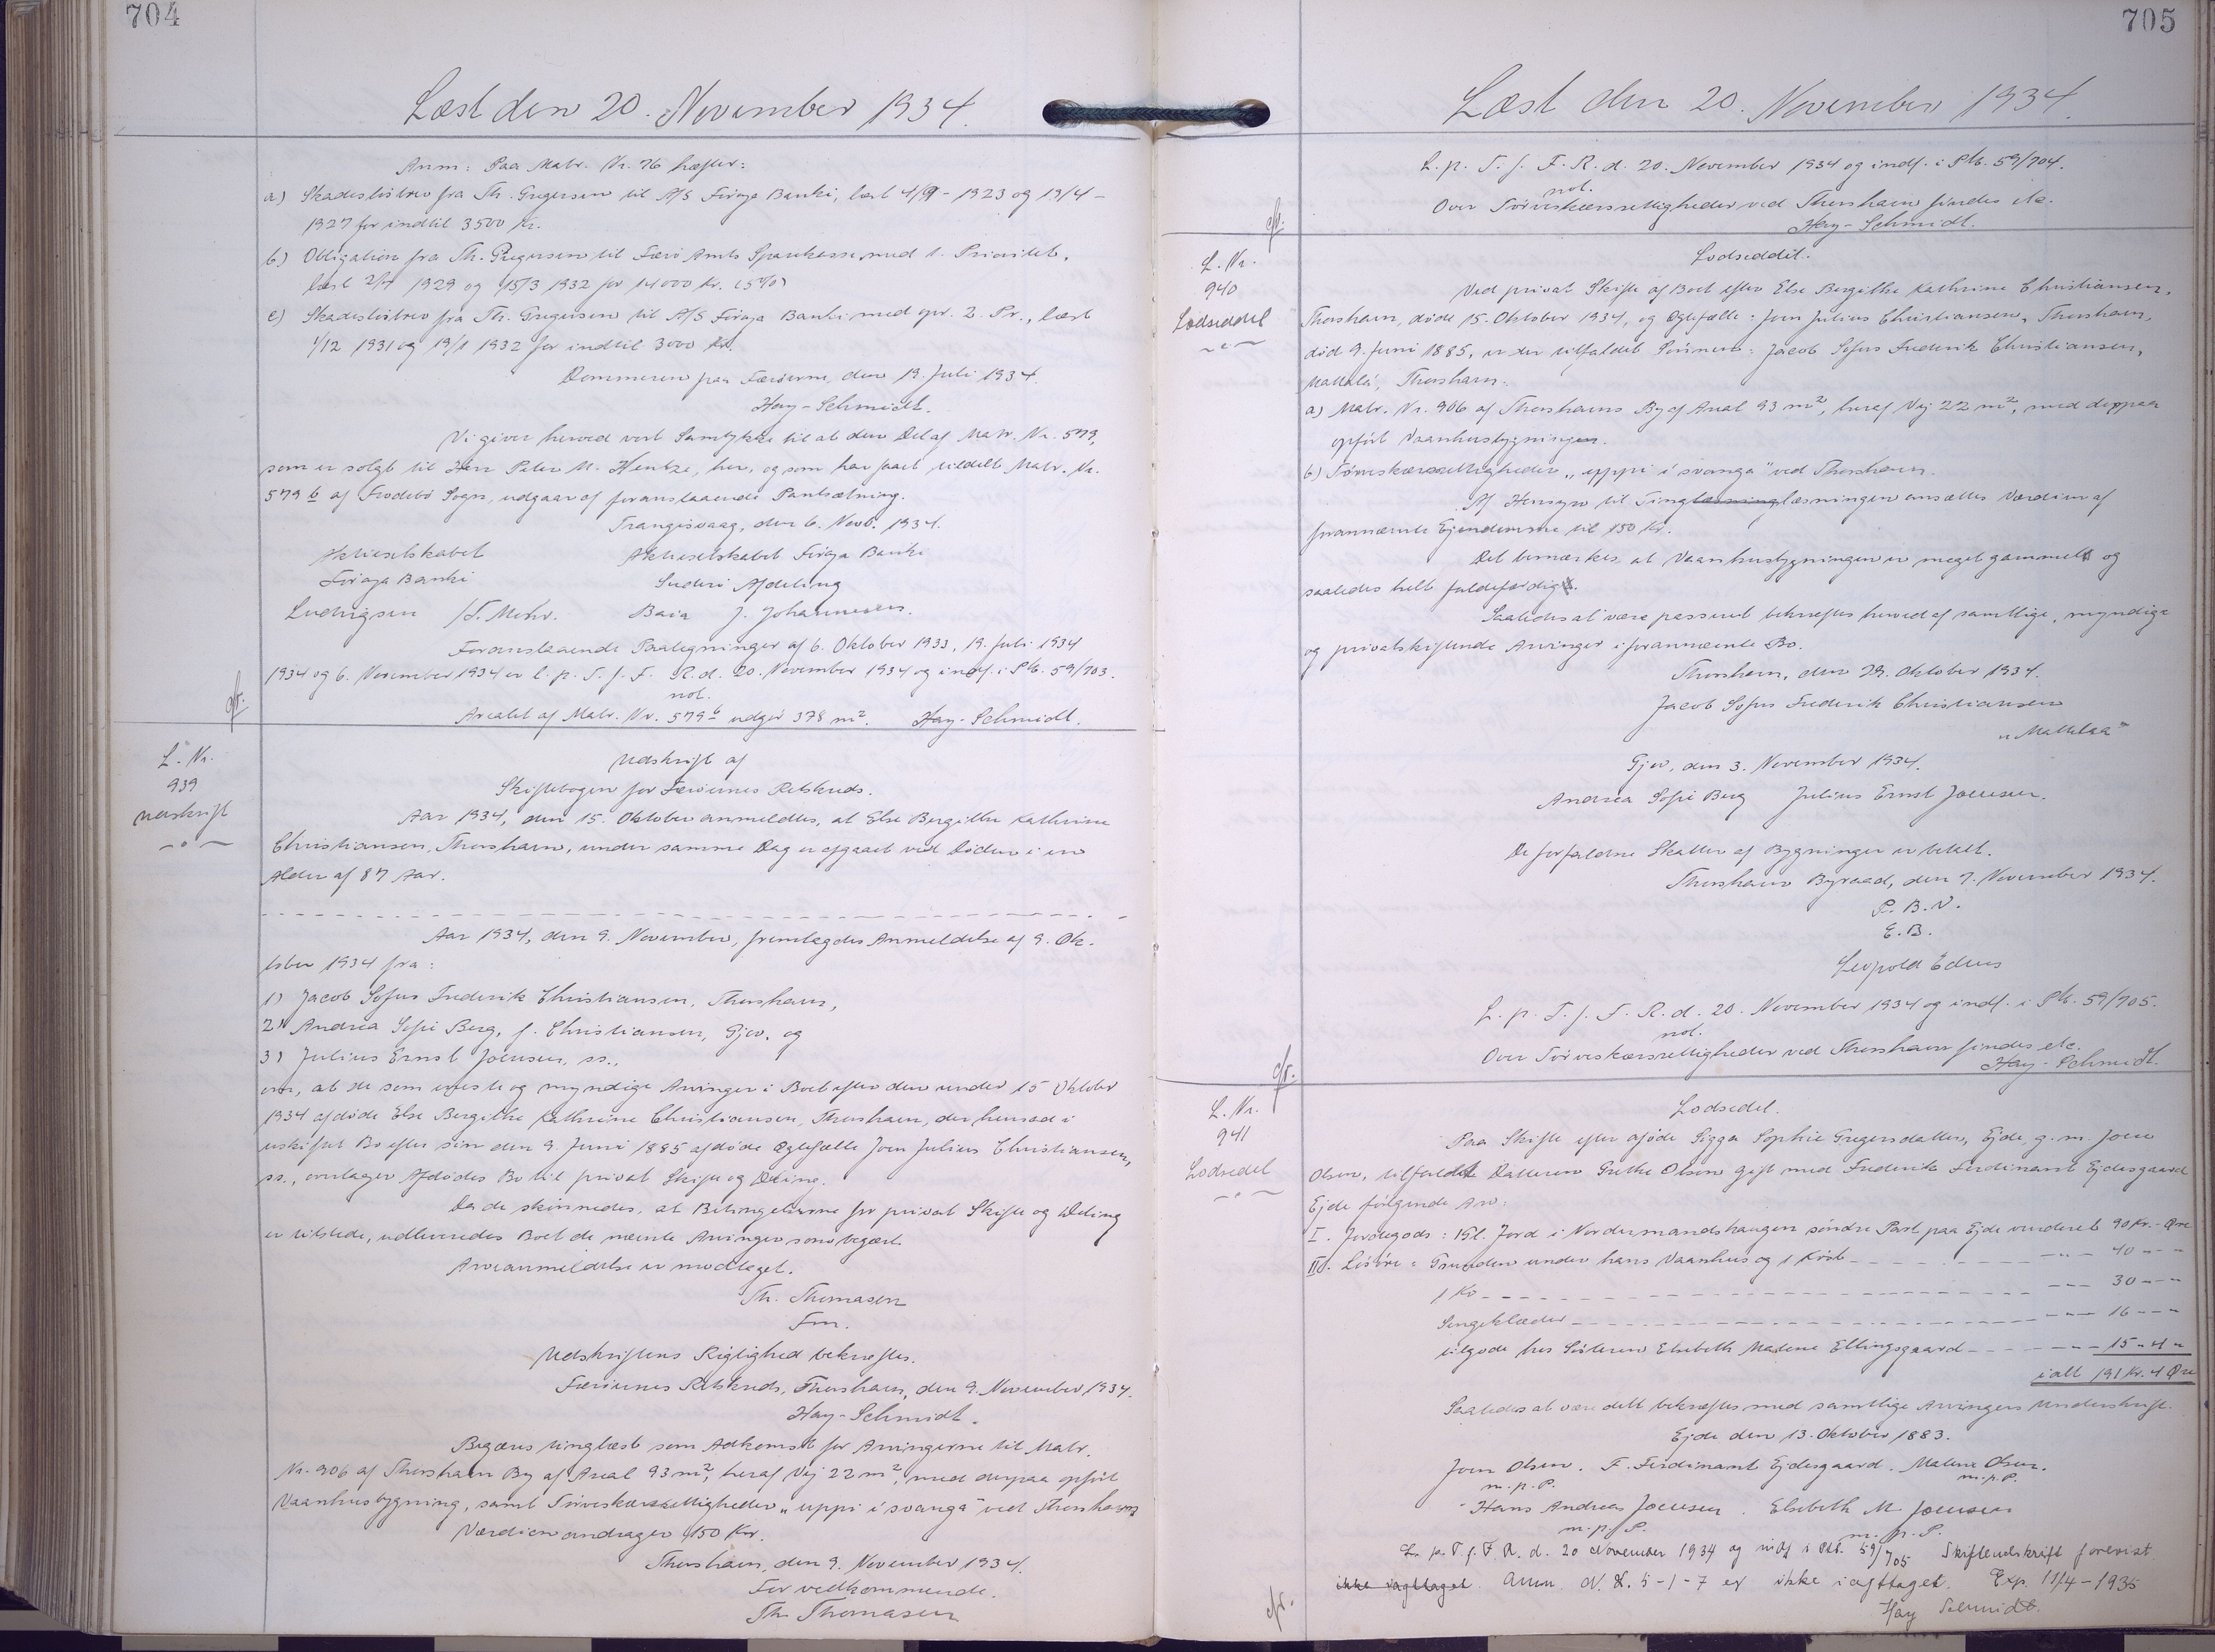 704
Læst den 20. November 1934.
Anm: Paa Matr. Nr. 76 hæfter:
a) Skadesløsbrev fra Th. Gregersen til A/S Føroya Banki, læst 4/9 - 1923 og 19/4 -
1927 for indtil 3500 Kr.
b) Obligation fra Th. Gregersen til Færø Amts Sparekasse med 1. Prioritet,
læst 2/4 1929 og 15/3 1932 for 14000 Kr. (5%)
c) Skadesløsbrev fra Th. Gregersen til A/S Føroya Banki med opr. 2. Pr., læst
1/12 1931 og 19/1 1932 for indtil 3000 Kr.
Dommeren paa Færøerne, den 19. Juli 1934.
Hay-Schmidt.
Vi giver herved vort Samtykke til at den Del af Matr. Nr. 579,
som er solgt til Herr Peter M. Hentze, her, og som har faaet tildelt Matr. Nr.
579 b af Frodebø Sogn, udgaar af foranstaaende Pantsætning.
Trangisvaag, den 6. Novb. 1934.
Aktieselskabet Aktieselskabet Føroya Banki
Føroya Banki Suderø Afdeling
Ludvigsen /S. Mohr. Baia J. Johannesen.
Foranstaaende Paategninger af 6. Oktober 1933, 19. Juli 1934
1934 og 6. November 1934 er l. p. T. f. F. R. d. 20. November 1934 og indf. i Ptb. 59/703.
not.
Arealet af Matr. Nr. 579 b udgør 378 m². Hay-Schmidt.
cfr.
L. Nr.
939
Udskrift
Udskrift af
Skiftebogen for Færøernes Retskreds.
Aar 1934, den 15. Oktober anmeldtes, at Else Bergithe Kathrine
Christiansen, Thorshavn, under samme Dag er afgaaet ved Døden i en
Alder af 87 Aar.
Aar 1934, den 9. November, fremlagdes Anmeldelse af 9. Ok-
tober 1934 fra:
1) Jacob Sofus Frederik Christiansen, Thorshavn,
2) Andrea Sofie Berg, f. Christiansen, Gjov, og
3) Julius Ernst Joensen, ss.,
om, at de som eneste og myndige Arvinger i Boet efter den under 15 Oktober
1934 afdøde Else Bergithe Kathrine Christiansen, Thorshavn, der hensad i
uskiftet Bo efter sin den 9. Juni 1885 afdøde Ægtefælle Joen Julius Christiansen,
ss., overtager Afdødes Bo til privat Skifte og Deling.
Da de skønnedes, at Betingelserne for privat Skifte og Deling
er tilstede, udleveredes Boet de nævnte Arvinger som begært.
Arveanmeldelse er modtaget.
Th. Thomasen
Fm.
Udskriftens Rigtighed bekræftes.
Færøernes Retskreds, Thorshavn, den 9. November 1934.
Hay-Schmidt.
Begæres tinglæst som Adkomst for Arvingerne til Matr.
Nr. 906 af Thorshavn By af Areal 93 m², heraf Vej 22 m², med derpaa opført
Vaanhusbygning, samt Tørveskærsrettigheder „uppi í svanga" ved Thorshavn
Værdien andrager 150 Kr.
Thorshavn, den 9. November 1934.
For vedkommende.
Th. Thomasen
705
Læst den 20. November 1934.
L. p. T. f. F. R. d. 20. November 1934 og indf. i Ptb. 59/704.
not.
Over Tørveskærsrettigheder ved Thorshavn findes etc.
Hay-Schmidt.
cfr.
L. Nr.
940
Lodseddel
Lodseddel.
Ved privat Skifte af Boet efter Else Bergithe Kathrine Christiansen,
Thorshavn, døde 15. Oktober 1934, og Ægtefælle: Joen Julius Christiansen, Thorshavn,
død 9. Juni 1885, er der tilfaldet Sønnen: Jacob Sofus Frederik Christiansen,
Mattalá, Thorshavn.
a) Matr. Nr. 906 af Thorshavns By af Areal 93 m², heraf Vej 22 m², med derpaa
opført Vaanhusbygningen.
b) Tørveskærsrettigheder „uppi í svanga" ved Thorshavn.
Af Hensyn til Tinglæsninglæsningen ansættes Værdien af
foranævnte Ejendomme til 150 Kr.
Det bemærkes, at Vaanhusbygningen er meget gammelt og
saaledes helt faldefærdigt.
Saaledes at være passeret bekræftes herved af samtlige, myndige
og privatskiftende Arvinger i foranævnte Bo.
Thorshavn, den 29. Oktober 1934.
Jacob Sofus Frederik Christiansen
„Mattalaa"
Gjov, den 3. November 1934.
Andrea Sofie Berg Julius Ernst Joensen.
De forfaldne Skatter af Bygninger er betalt.
Thorshavn Byraad, den 7. November 1934.
P. B. V.
E. B.
Leopold Edens
L. p. T. f. F. R. d. 20. November 1934 og indf. i Ptb. 59/705.
not.
Over Tørveskærsrettigheder ved Thorshavn findes etc.
Hay-Schmidt.
cfr.
L. Nr.
941
Lodsedel
Lodsedel.
Paa Skifte efter afdøde Sigga Sophie Gregersdatter, Ejde, g. m. Joen
Olsen, tilfaldt Datteren Grethe Olsen gift med Frederik Ferdinant Ejdesgaard
Ejde følgende Arv:
I. Jordegods: 1 Gl. Jord i Nordermandshaugen søndre Part paa Ejde vurderet 90 Kr. - Øre
II. Løsøre: Grunden under hans Vaanhus og 1 Krob - - - 40 - -
1 Ko - - - 30 - -
Sengeklæder - - - 16 - -
tilgode hos Søsteren Elsebeth Malene Ellingsgaard - - - 15 - 4 -
ialt 191 Kr. 4 Øre
Saaledes at være delt bekræftes med samtlige Arvingers Underskrift.
Ejde den 13. Oktober 1883.
Joen Olsen. F. Ferdinant Ejdesgaard. Malene Olsen.
m. p. P. m. p. P.
Hans Andreas Joensen. Elsebeth M. Joensen
m. p. P. m. p. P.
L. p. T. f. F. R. d. 20 November 1934 og indf i Ptb. 59/705 Skifteudskrift forevist.
ikke iagttaget. Anm. N. L. 5-1-7 er ikke iagttaget. Exp. 11/4-1935
Hay Schmidt.
cfr.